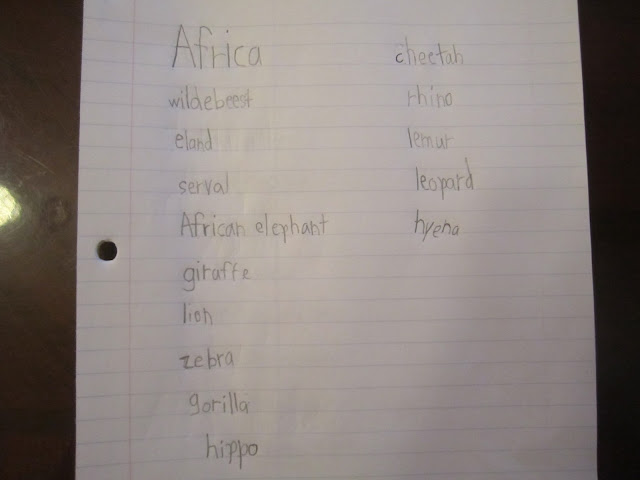 Africa
wildebeest
eland
serval
African elephant
giraffe
lion
zebra
gorilla
hippo
cheetah
rhino
lemur
leopard
hyena